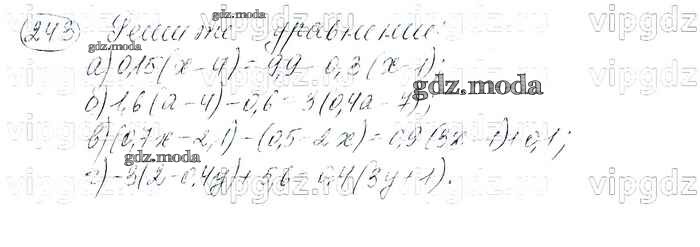 243 Решите уравнение:
а) 0,15(x-4) = 9,9 - 0,3(x-1);
б) 1,6(a-4) - 0,6 = 3(0,4a-7);
в) (0,7x - 2,1) - (0,5 - 2x) = 0,9(3x-1) + 0,1;
г) -3(2-0,4y) + 5,6 = 0,4(3y+1).
gdz.moda
gdz.moda
gdz.moda
gdz.moda
vipgdz